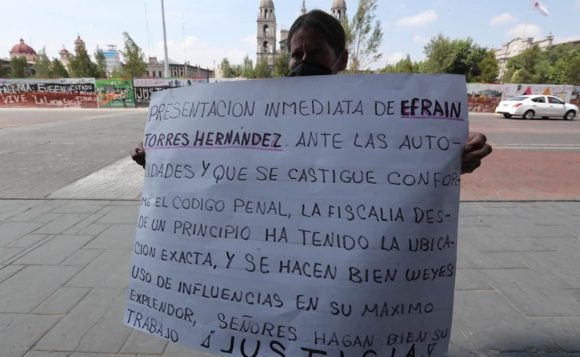 PRESENTACION INMEDIATA DE EFRAIN
TORRES HERNÁNDEZ. ANTE LAS AUTO-
IDADES Y QUE SE CASTIGUE CONFOR-
ME EL CODIGO PENAL, LA FISCALIA DES-
DE UN PRINCIPIO HA TENIDO LA UBICA-
CION EXACTA, Y SE HACEN BIEN WEYES
USO DE INFLUENCIAS EN SU MAXIMO
EXPLENDOR, SEÑORES HAGAN BIEN SU
TRABAJO ¡JUSTICIA!
VIVE